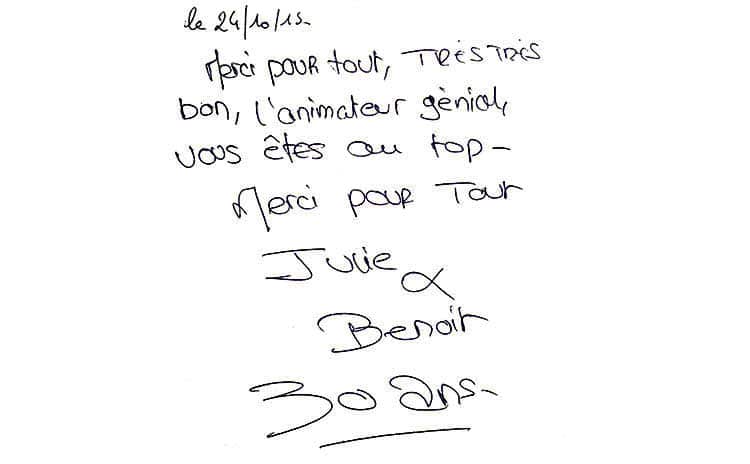 le 24/10/15-
Merci pour tout, TRÈS TRÈS
bon, l'animateur génial,
vous êtes au top-
Merci pour Tout
Julie &
Benoit
30 ans-